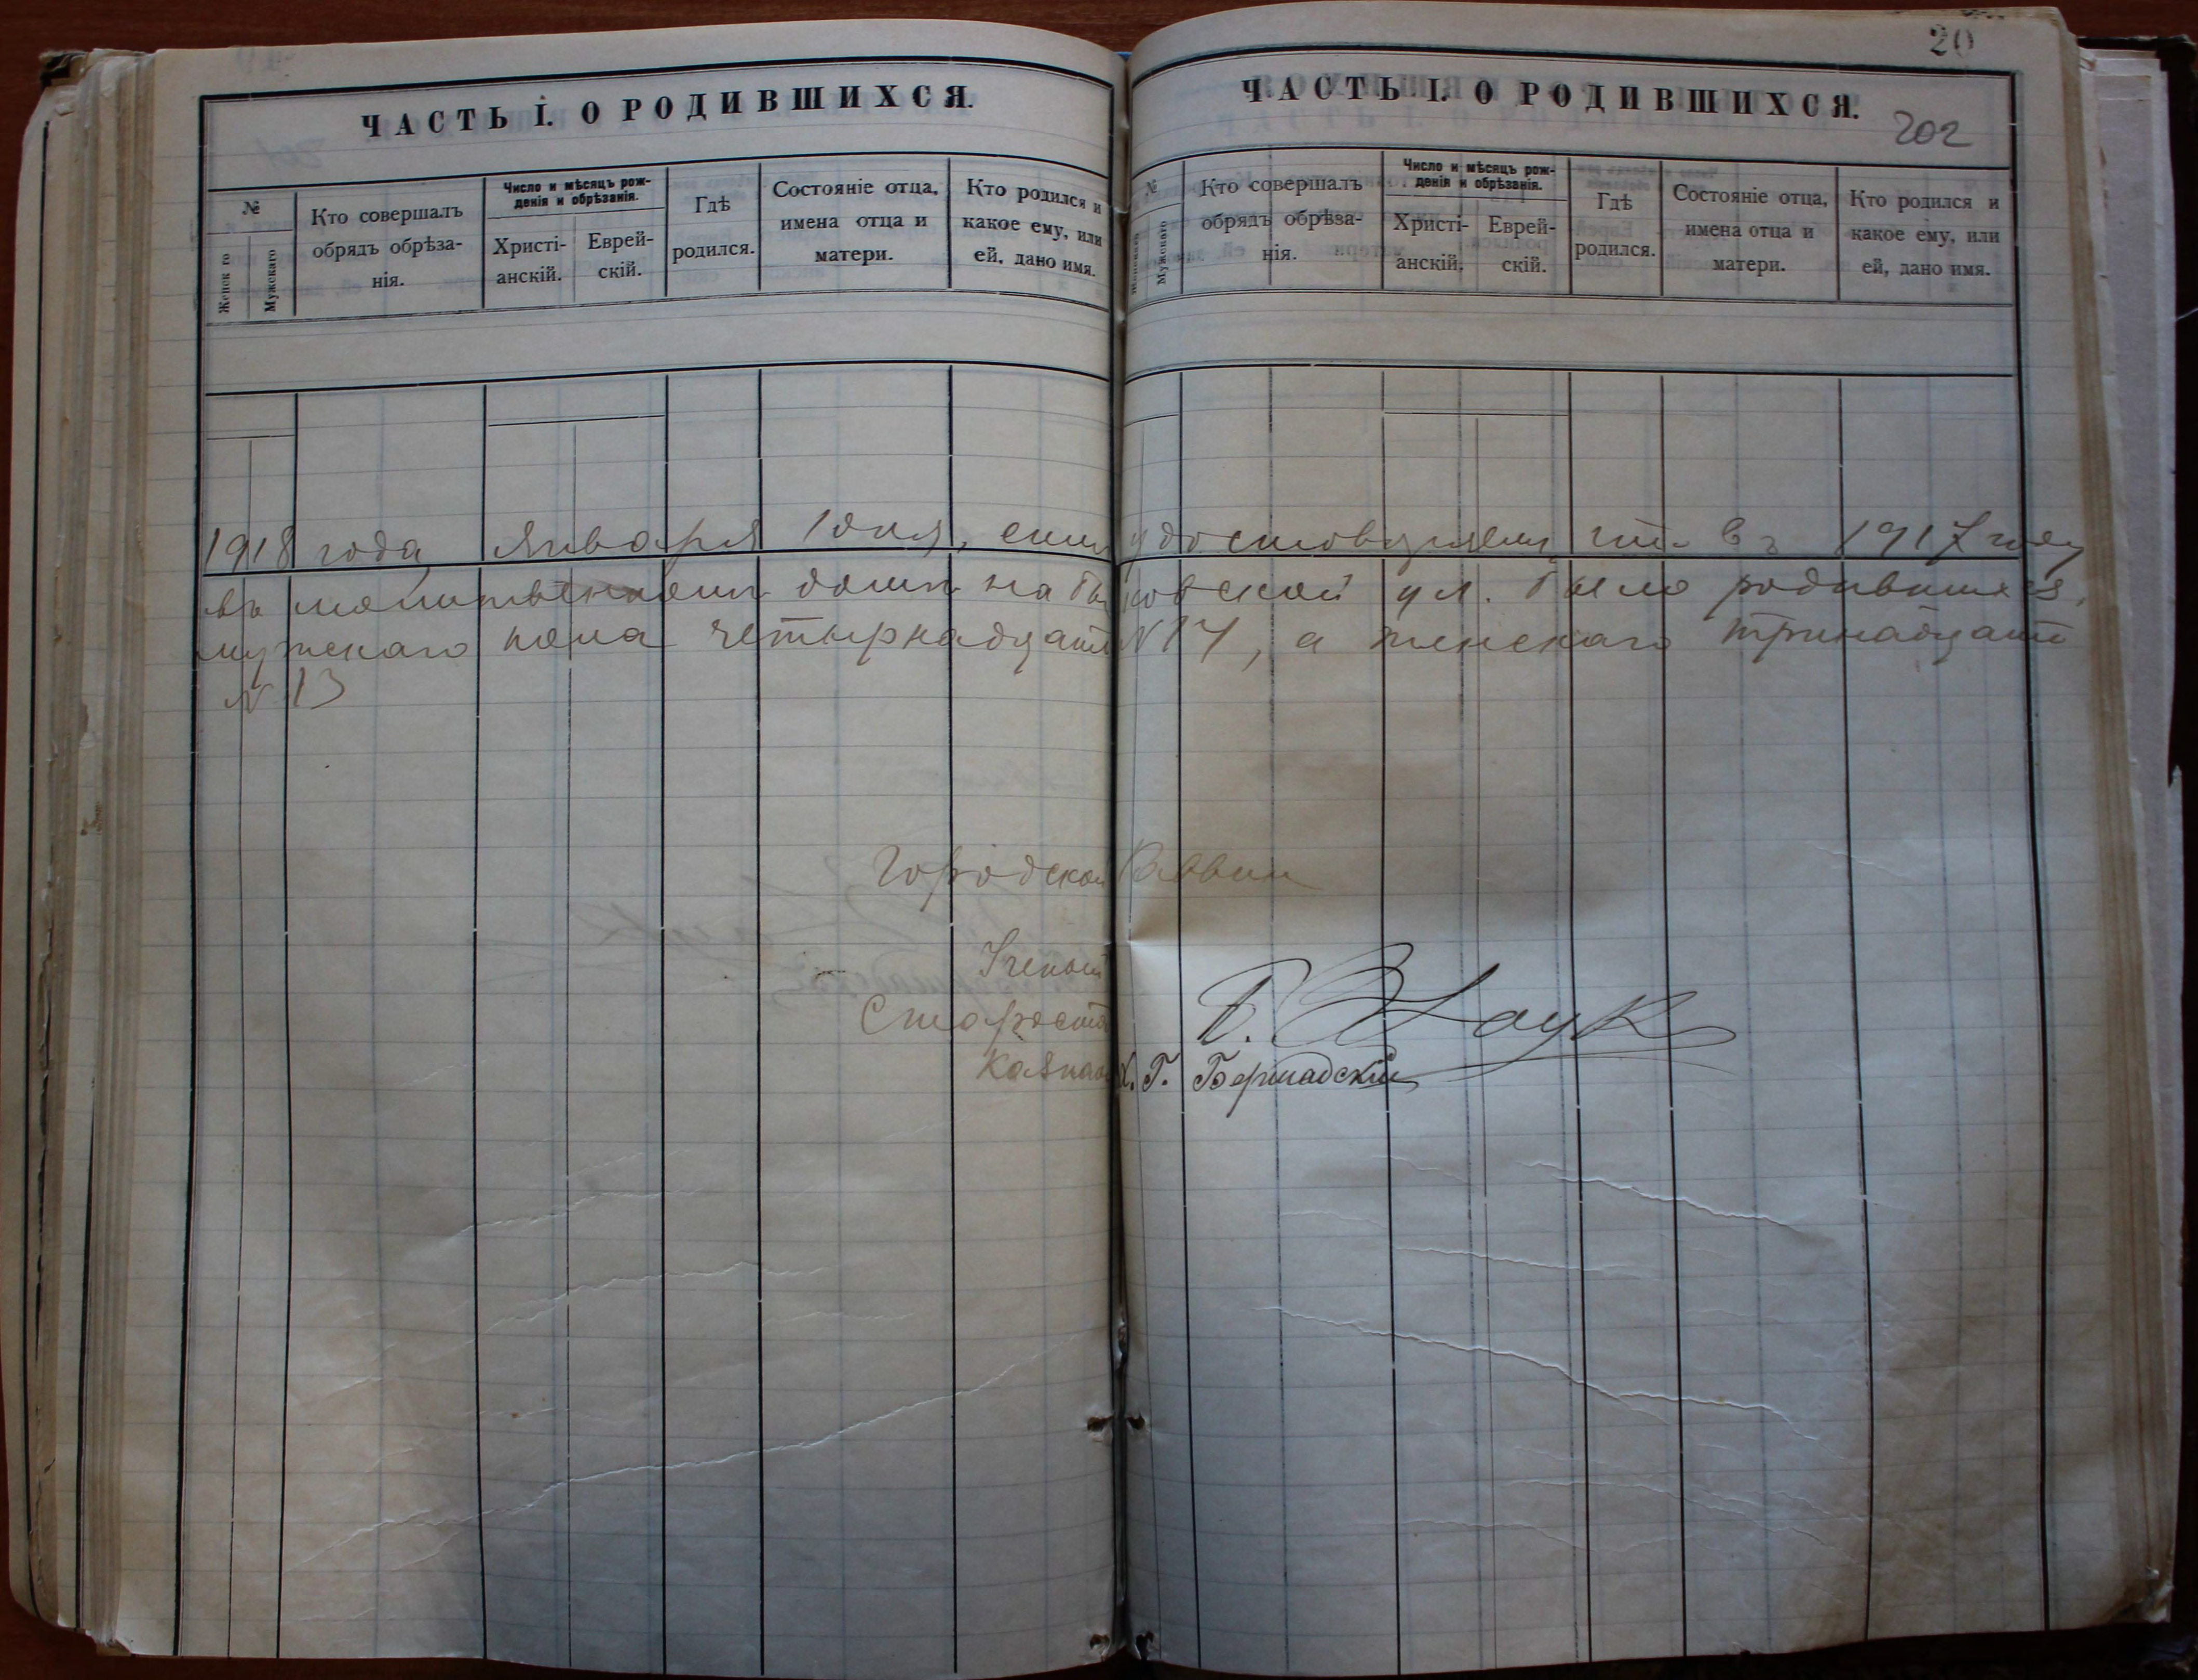 ЧАСТЬ I. О РОДИВШИХСЯ.
№
Женск го
Мужскаго
Кто совершалъ
обрядъ обрѣза-
нія.
Число и мѣсяцъ рож-
денія и обрѣзанія.
Христі-
анскій.
Еврей-
скій.
Гдѣ
родился.
Состояніе отца,
имена отца и
матери.
Кто родился и
какое ему, или
ей, дано имя.
20
ЧАСТЬ I. О РОДИВШИХСЯ.
202
№
Женскаго
Мужскаго
Кто совершалъ
обрядъ обрѣза-
нія.
Число и мѣсяцъ рож-
денія и обрѣзанія.
Христі-
анскій.
Еврей-
скій.
Гдѣ
родился.
Состояніе отца,
имена отца и
матери.
Кто родился и
какое ему, или
ей, дано имя.
1918 года Января 1 дня, симъ удостовѣряемъ что въ 1917 году
въ молитвенномъ домѣ на ул. было родившихся
мужскаго пола четырнадцать №14, а женскаго тринадцать
№ 13
Городской Раввинъ
Ученый
Староста
Казнач. Х. Г. Бершадскій